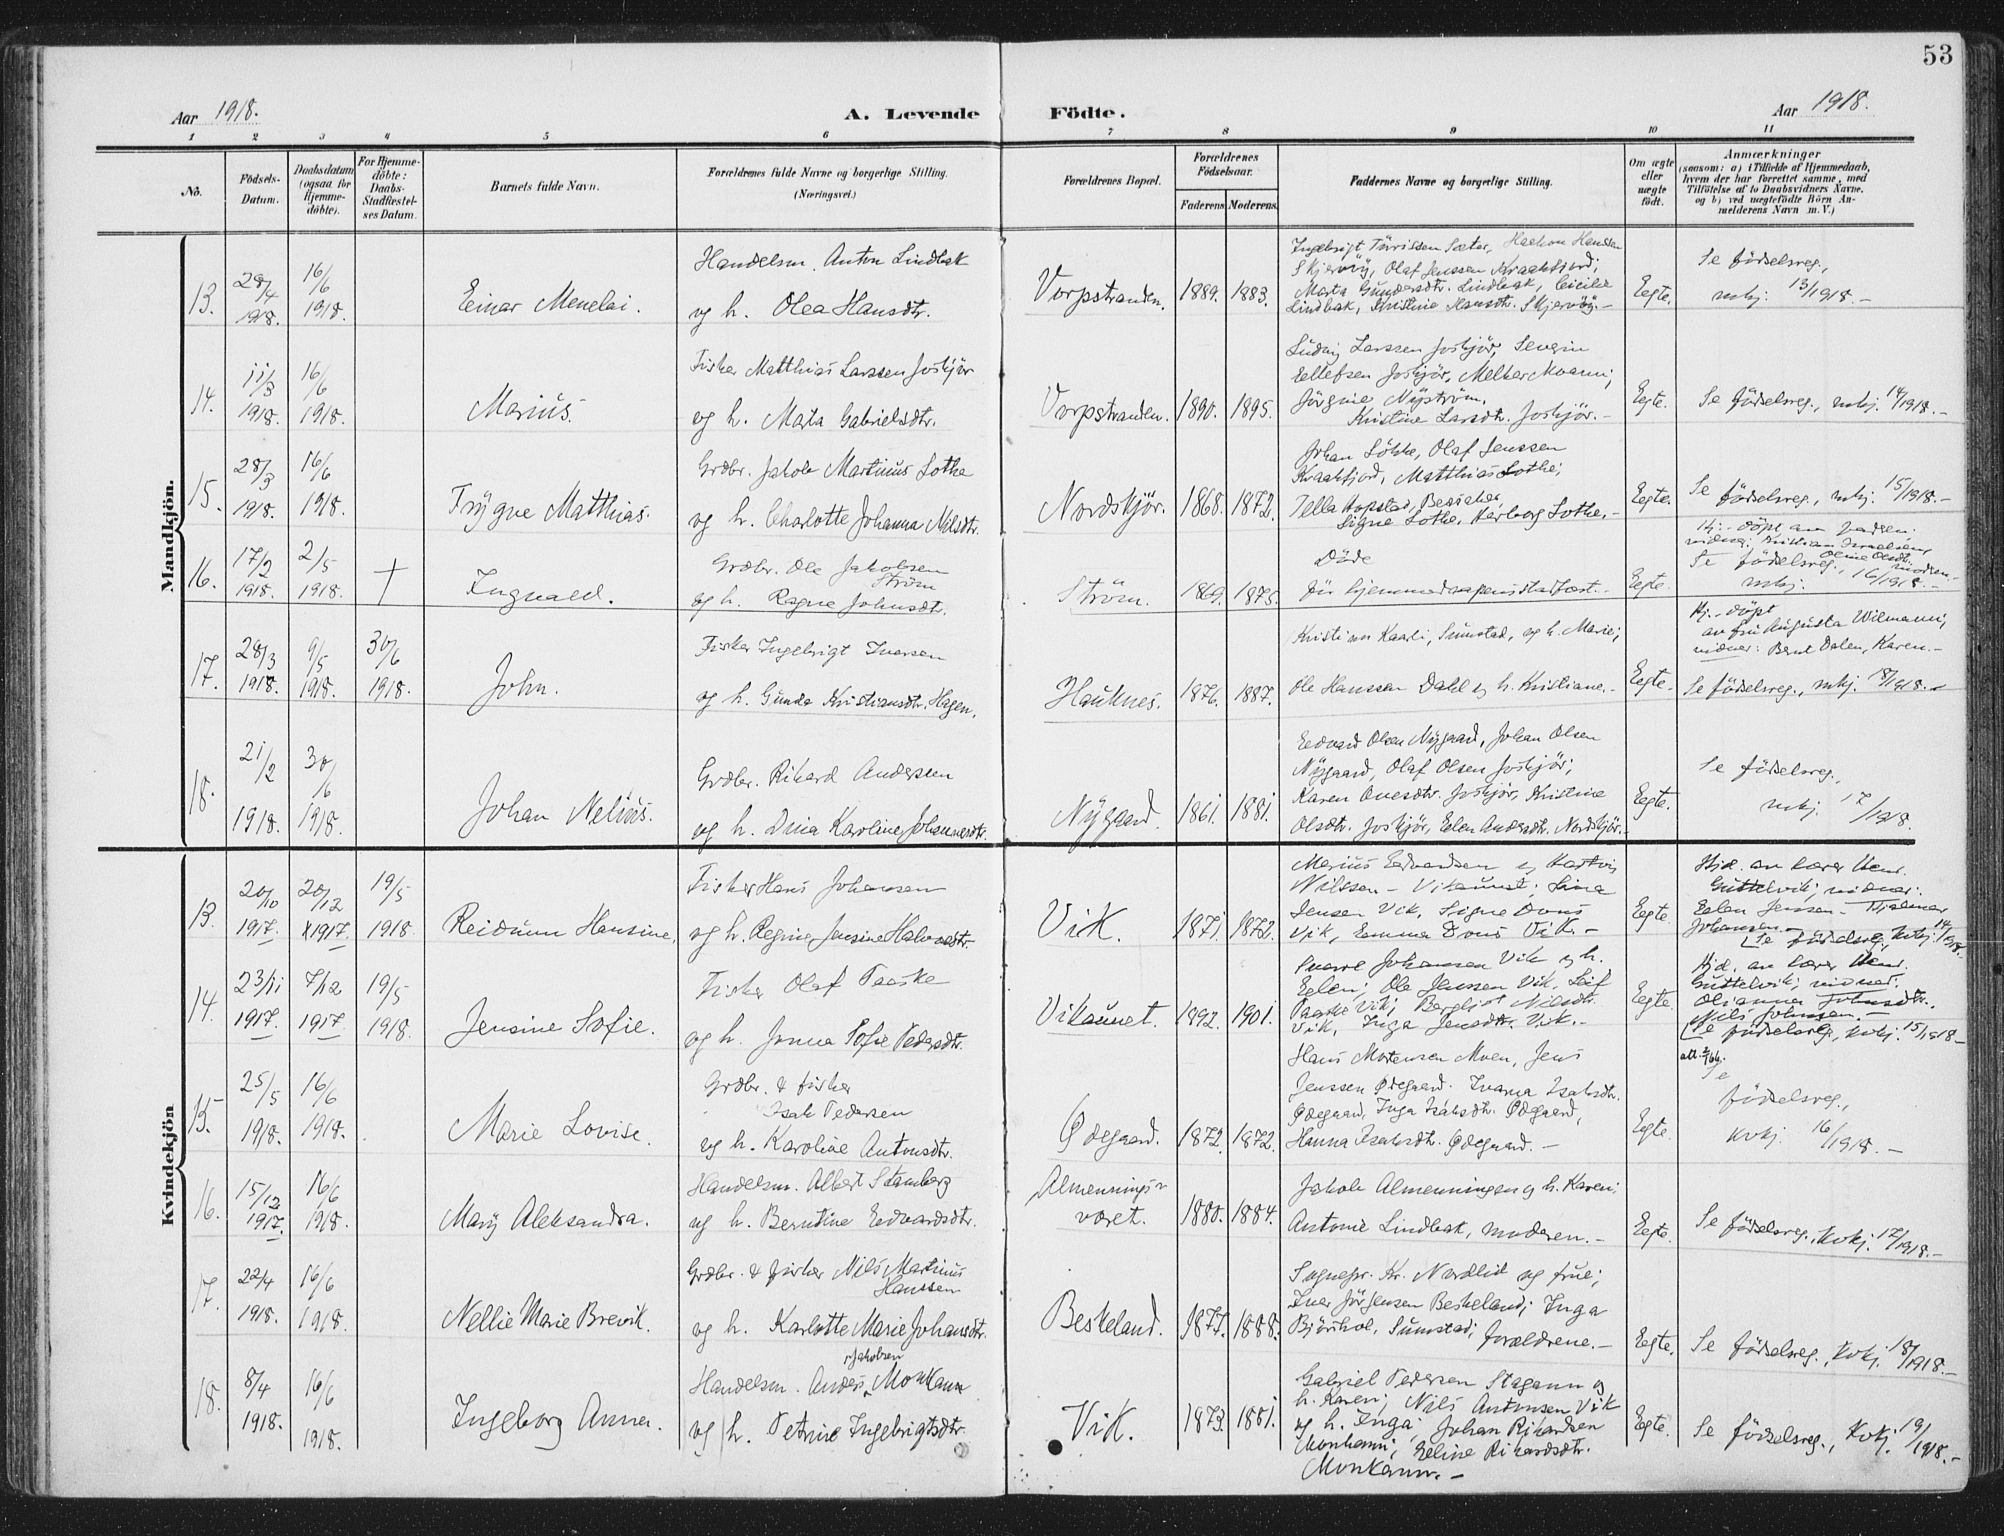 53
Aar 1918.
A. Levende Födte.
Aar 1918.
1 2 3 4 5 6 7 8 9 10 11
No.
Födsels-Datum.
Daabsdatum (ogsaa for Hjemme-döbte).
For Hjemme-döbte: Daabs-Stadfæstel-ses Datum.
Barnets fulde Navn.
Forældrenes fulde Navne og borgerlige Stilling. (Næringsvei.)
Forældrenes Bopæl.
Forældrenes Födselsaar.
Faderens Moderens.
Faddernes Navne og borgerlige Stilling.
Om ægte eller uægte födt.
Anmærkninger
(saasom: a) i Tilfælde af Hjemmedaab, hvem der har forrettet samme, med Tilföielse af to Daabsvidners Navne, og b) ved uægtefödte Börn An-melderens Navn m. V.)
Mandkjön.
13. 28/4 1918. 16/6 1918. Einar Menelai.
Handelsm. Anton Lindbak
og h. Olea Hansdtr.
Vorpstranden. 1889. 1883.
Ingebrigt Törrissen Sæter, Haakon Hanssen
Skjervöy, Olaf Jenssen Kraakfjord;
Marta Gundersdtr. Lindbak, Cicilie
Lindbak, Kristine Hansdtr. Skjervöy.-
Egte.
Se födselsreg.,
mkj. 13/1918.-
14. 11/3 1918. 16/6 1918. Marius.
Fisker Matthias Larssen Joskjör
og h. Marta Gabrielsdtr.
Vorpstranden. 1890. 1895.
Ludvig Larssen Joskjör, Severin
Ellefsen Joskjör, Melker Moann;
Jörgine Nyström,
Kristine Larsdtr. Joskjör.-
Egte.
Se födselsreg., mkj. 14/1918.-
15. 28/3 1918. 16/6 1918. Trygve Matthias.
Grdbr. Jakob Martinus Sothe
og h. Charlotte Johanna Nilsdtr.
Nordskjör. 1868. 1872.
Johan Sökke, Olaf Jenssen
Kraakfjord, Matthias Sothe;
Tella Hopstad, Bessaker,
Signe Sothe, Herborg Sothe.-
Egte.
Se födselsreg., mkj. 15/1918.-
16. 17/2 1918. 2/5 1918. † Ingvald.
Grdbr. Ole Jakobsen
Ström
og h. Ragna Johnsdtr.
Ström. 1869. 1875.
Döde
för hjemmedaapens stadfæst.-
Egte.
Hj.-döpt av
vidner: Kristian Israelsen,
Oline Olsdtr.
Se födselsreg.,
mkj. 16/1918.-
17. 28/3 1918. 9/5 1918. 30/6 1918. John.
Fisker Ingebrigt Iversen
og h. Gunda Kristiansdtr. Hagen.
Hauknes. 1876. 1887.
Kristian Kaarli, Sumstad, og h. Marie;
Ole Hanssen Dahl og h. Kristiane.-
Egte.
Hj.-döpt
av fru Augusta Wilmann;
vidner: Bernt Dalen, Karen.-
Se födselsreg., mkj. 18/1918.-
18. 21/2 1918. 30/6 1918. Johan Nelius.
Grdbr. Rikard Andersen
og h. Dina Karoline Johannesdtr.
Nygaard. 1861. 1881.
Edvard Olsen Nygaard, Johan Olsen
Nygaard, Olaf Olsen Joskjör;
Karen Ovesdtr. Joskjör, Kristine
Olsdtr. Joskjör, Elen Andersdtr. Nordskjör.-
Egte.
Se födselsreg.,
mkj. 17/1918.
Kvindekjön
13. 20/10 1917. 20/12 1917 19/5 1918. Reidunn Hansine.
Fisker Hans Johansen
og h. Regine Jensine Halvorsdtr.
Vik. 1871. 1872.
Marius Edvardsen og Hartvig
Nilssen - Vikaunet; Lina
Jensen Vik, Signe Dons
Vik, Emma Dons Vik.-
Egte.
Hjd. av lærer Henr.
Guttelvik; vidner:
Elen Jenssen - Hjalmar
Johansen.-
Se födselsreg., kvkj. 14/1918.
14. 23/11 1917. 7/12 1917. 19/5 1918. Jensine Sofie.
Fisker Olaf Paaske
og h. Jenna Sofie Pedersdtr.
Vikaunet. 1892. 1901.
Sverre Johansen Vik og h.
Elen; Ole Jenssen Vik, Leif
Paaske Vik; Bergliot Nilsdtr.
Vik, Inga Jensdtr. Vik.-
Egte.
Hjd. av lærer Henr.
Guttelvik; vidner:
Olianna Johnsdtr.,
Nils Johnsen.-
Se födselsreg., kvkj. 15/1918-
15. 25/5 1918. 16/6 1918. Marie Lovise.
Grdbr. & fisker
Isak Pedersen
og h. Karoline Antonsdtr.
Ødegaard. 1872. 1872.
Hans Mortensen Moen, Jens
Jenssen Ødegaard. Ivarna Isaksdtr.
Ødegaard, Inga Isaksdtr. Ødegaard,
Hanna Isaksdtr. Ødegaard.-
Egte.
att. 2/66.
Se
födselsreg.,
kvkj. 16/1918.-
16. 15/12 1917. 16/6 1918. Mary Aleksandra.
Handelsm. Albert Stamberg
og h. Berntine Edvardsdtr.
Almennings-
været. 1880. 1884.
Jakob Almenningen og h. Karen;
Antonie Lindbak, moderen.-
Egte.
Se födselsreg., kvkj. 17/1918.-
17. 22/4 1918. 16/6 1918. Nellie Marie Brevik.
Grdbr. & fisker Nils Martinus
Hanssen
og h. Karlotte Marie Johansdtr.
Beskeland. 1877. 1888.
Sognepr. Kr. Nordlid og frue;
Iver Jörgensen Beskeland; Inga
Björhol, Sumstad; forældrene.-
Egte.
Se födselsreg., kvkj. 18/1918.-
18. 8/4 1918. 16/6 1918. Ingeborg Anna.
Jakobsen
Handelsm. Anders Monkann
og h. Petrine Ingebrigtsdtr.
Vik. 1873. 1881.
Gabriel Pedersen Stagann og
h. Karen; Nils Antonsen Vik
og h. Inga; Johan Rikardsen
Monkann; Eline Rikardsdtr.
Monkann.-
Egte.
Se födselsreg., kvkj. 19/1918.-